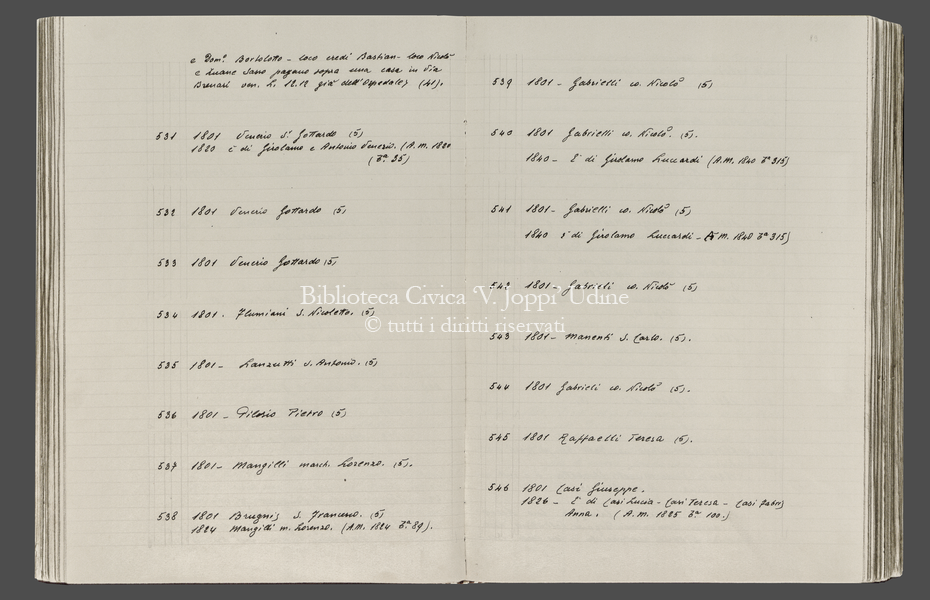 e Dom.º Bortolotto - loco eredi Bastian - loco Nicolò
e Luane Sano pagano sopra una casa in Via
Brenari ven. L. 12.12 già dell'Ospedale) (41).
531 1801 Venerio S.r Gottardo (5)
1820 È di Girolamo e Antonio Venerio. (A.m. 1820
(Bª 35)
532 1801 Venerio Gottardo (5)
533 1801 Venerio Gottardo (5)
534 1801. Flumiani S. Nicoletto. (5)
535 1801 - Lanzutti S. Antonio. (5)
536 1801 - Pilosio Pietro (5)
537 1801 - Mangilli march. Lorenzo. (5).
538 1801 Brugnis S. Francesco. (5)
1824 Mangilli m. Lorenzo. (A.M. 1824 Bª 89).
539 1801 - Gabrielli co. Nicolò (5)
540 1801 Gabrielli co. Nicolò. (5).
1840 - È di Girolamo Luccardi (A.M. 1840 Bª 315)
541 1801 - Gabrielli co. Nicolò (5)
1840 È di Girolamo Luccardi - (A.M. 1840 Bª 315)
542 1801 - Gabrieli co. Nicolò (5)
543 1801 - Manenti S. Carlo. (5).
544 1801 Gabrieli co. Nicolò (5).
545 1801 Raffaelli Teresa (5).
546 1801 Casi Giuseppe.
1826 - È di Casi Lucia - Casi Teresa - Casi
Anna. (A.M. 1825 Bª 100.)
Biblioteca Civica 'V. Joppi' Udine
© tutti i diritti riservati